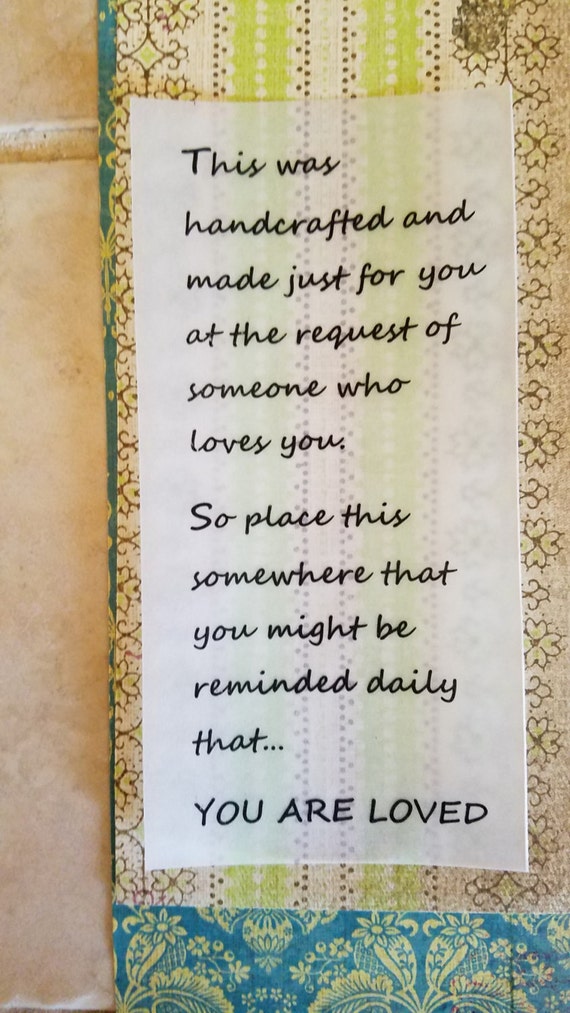 This was
handcrafted and
made just for you
at the request of
someone who
loves you.
So place this
somewhere that
you might be
reminded daily
that...
YOU ARE LOVED